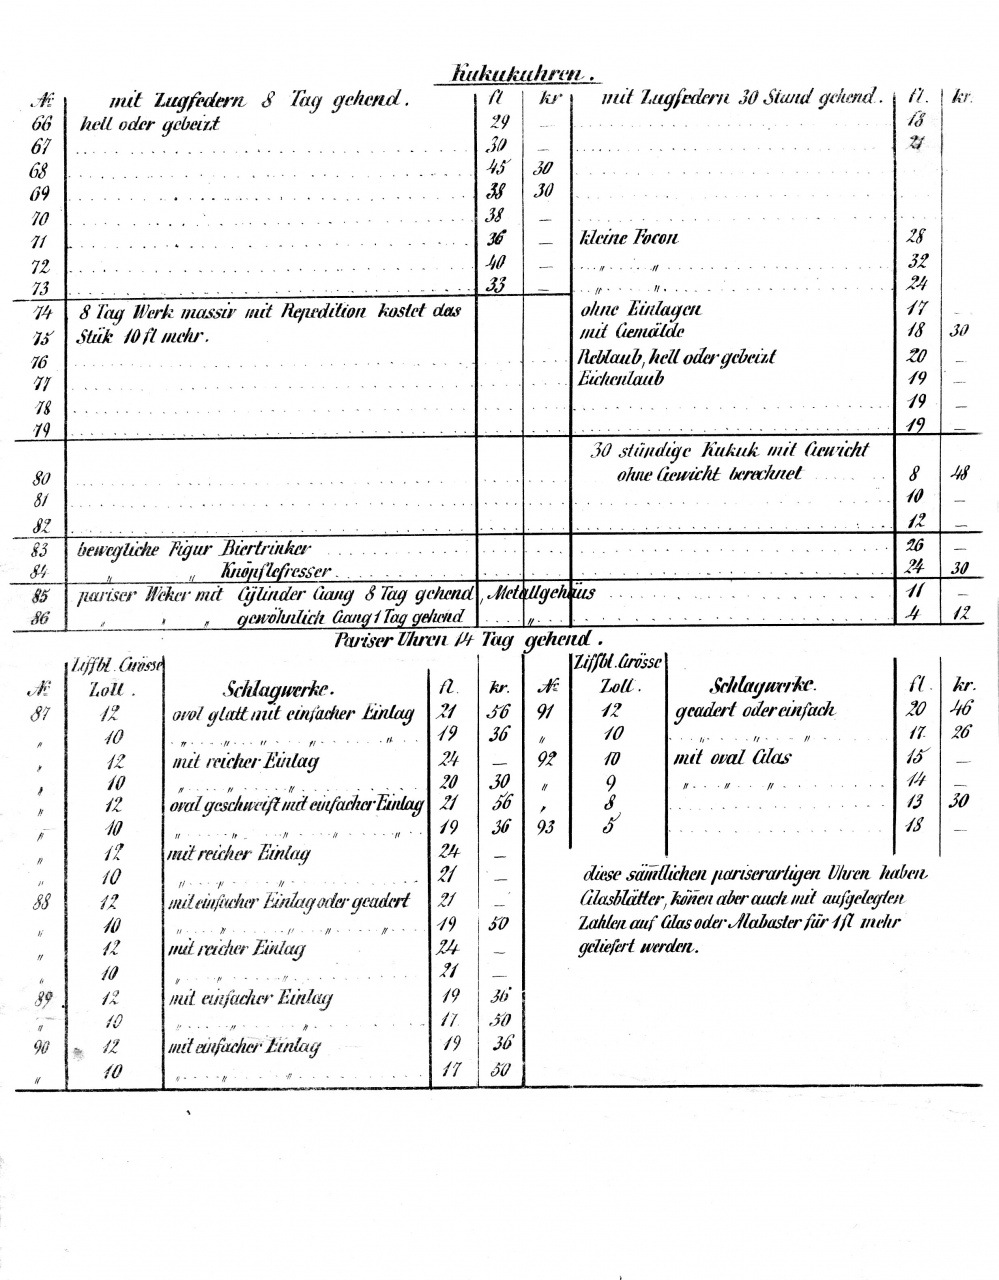 Kukukuhren.
№ mit Zugfedern 8 Tag gehend. fl kr mit Zugfedern 30 Stand gehend. fl. kr.
66 hell oder gebeizt 29 — 18
67 30 — 21
68 45 30
69 38 30
70 38 —
71 36 — kleine Focon 28
72 40 — „ „ 32
73 33 — „ „ 24
74 8 Tag Werk massiv mit Repedition kostet das ohne Einlagen 17 —
75 Stük 10 fl mehr. mit Gemälde 18 30
76 Reblaub, hell oder gebeizt 20 —
77 Eichenlaub 19 —
78 19 —
79 19 —
30 stündige Kukuk mit Gewicht
80 ohne Gewicht berechnet 8 48
81 10 —
82 12 —
83 bewegliche Figur Biertrinker 26 —
84 „ „ Knöpflefresser 24 30
85 pariser Weker mit Cylinder Gang 8 Tag gehend, Metallgehäus 11 —
86 „ „ „ gewöhnlich Gang 1 Tag gehend „ 4 12
Pariser Uhren 14 Tag gehend.
Ziffbl. Grösse Ziffbl. Grösse
№ Zoll. Schlagwerke. fl. kr. № Zoll. Schlagwerke. fl. kr.
87 12 oval glatt mit einfacher Einlag 21 56 91 12 geadert oder einfach 20 46
„ 10 „ „ „ „ „ 19 36 „ 10 „ „ „ „ 17 26
„ 12 mit reicher Einlag 24 — 92 10 mit oval Glas 15 —
„ 10 „ „ „ 20 30 „ 9 „ „ „ 14 —
„ 12 oval geschweift mit einfacher Einlag 21 56 „ 8 13 30
„ 10 „ „ „ „ „ 19 36 93 5 18 —
„ 12 mit reicher Einlag 24 —
„ 10 „ „ „ 21 —
88 12 mit einfacher Einlag oder geadert 21 —
„ 10 „ „ „ „ „ 19 50
„ 12 mit reicher Einlag 24 —
„ 10 „ „ „ 21 —
89 12 mit einfacher Einlag 19 36
„ 10 „ „ „ 17 50
90 12 mit einfacher Einlag 19 36
„ 10 „ „ „ 17 50
diese säm̄tlichen pariserartigen Uhren haben
Glasblätter, kön̄en aber auch mit aufgelegten
Zahlen auf Glas oder Alabaster für 1 fl mehr
geliefert werden.